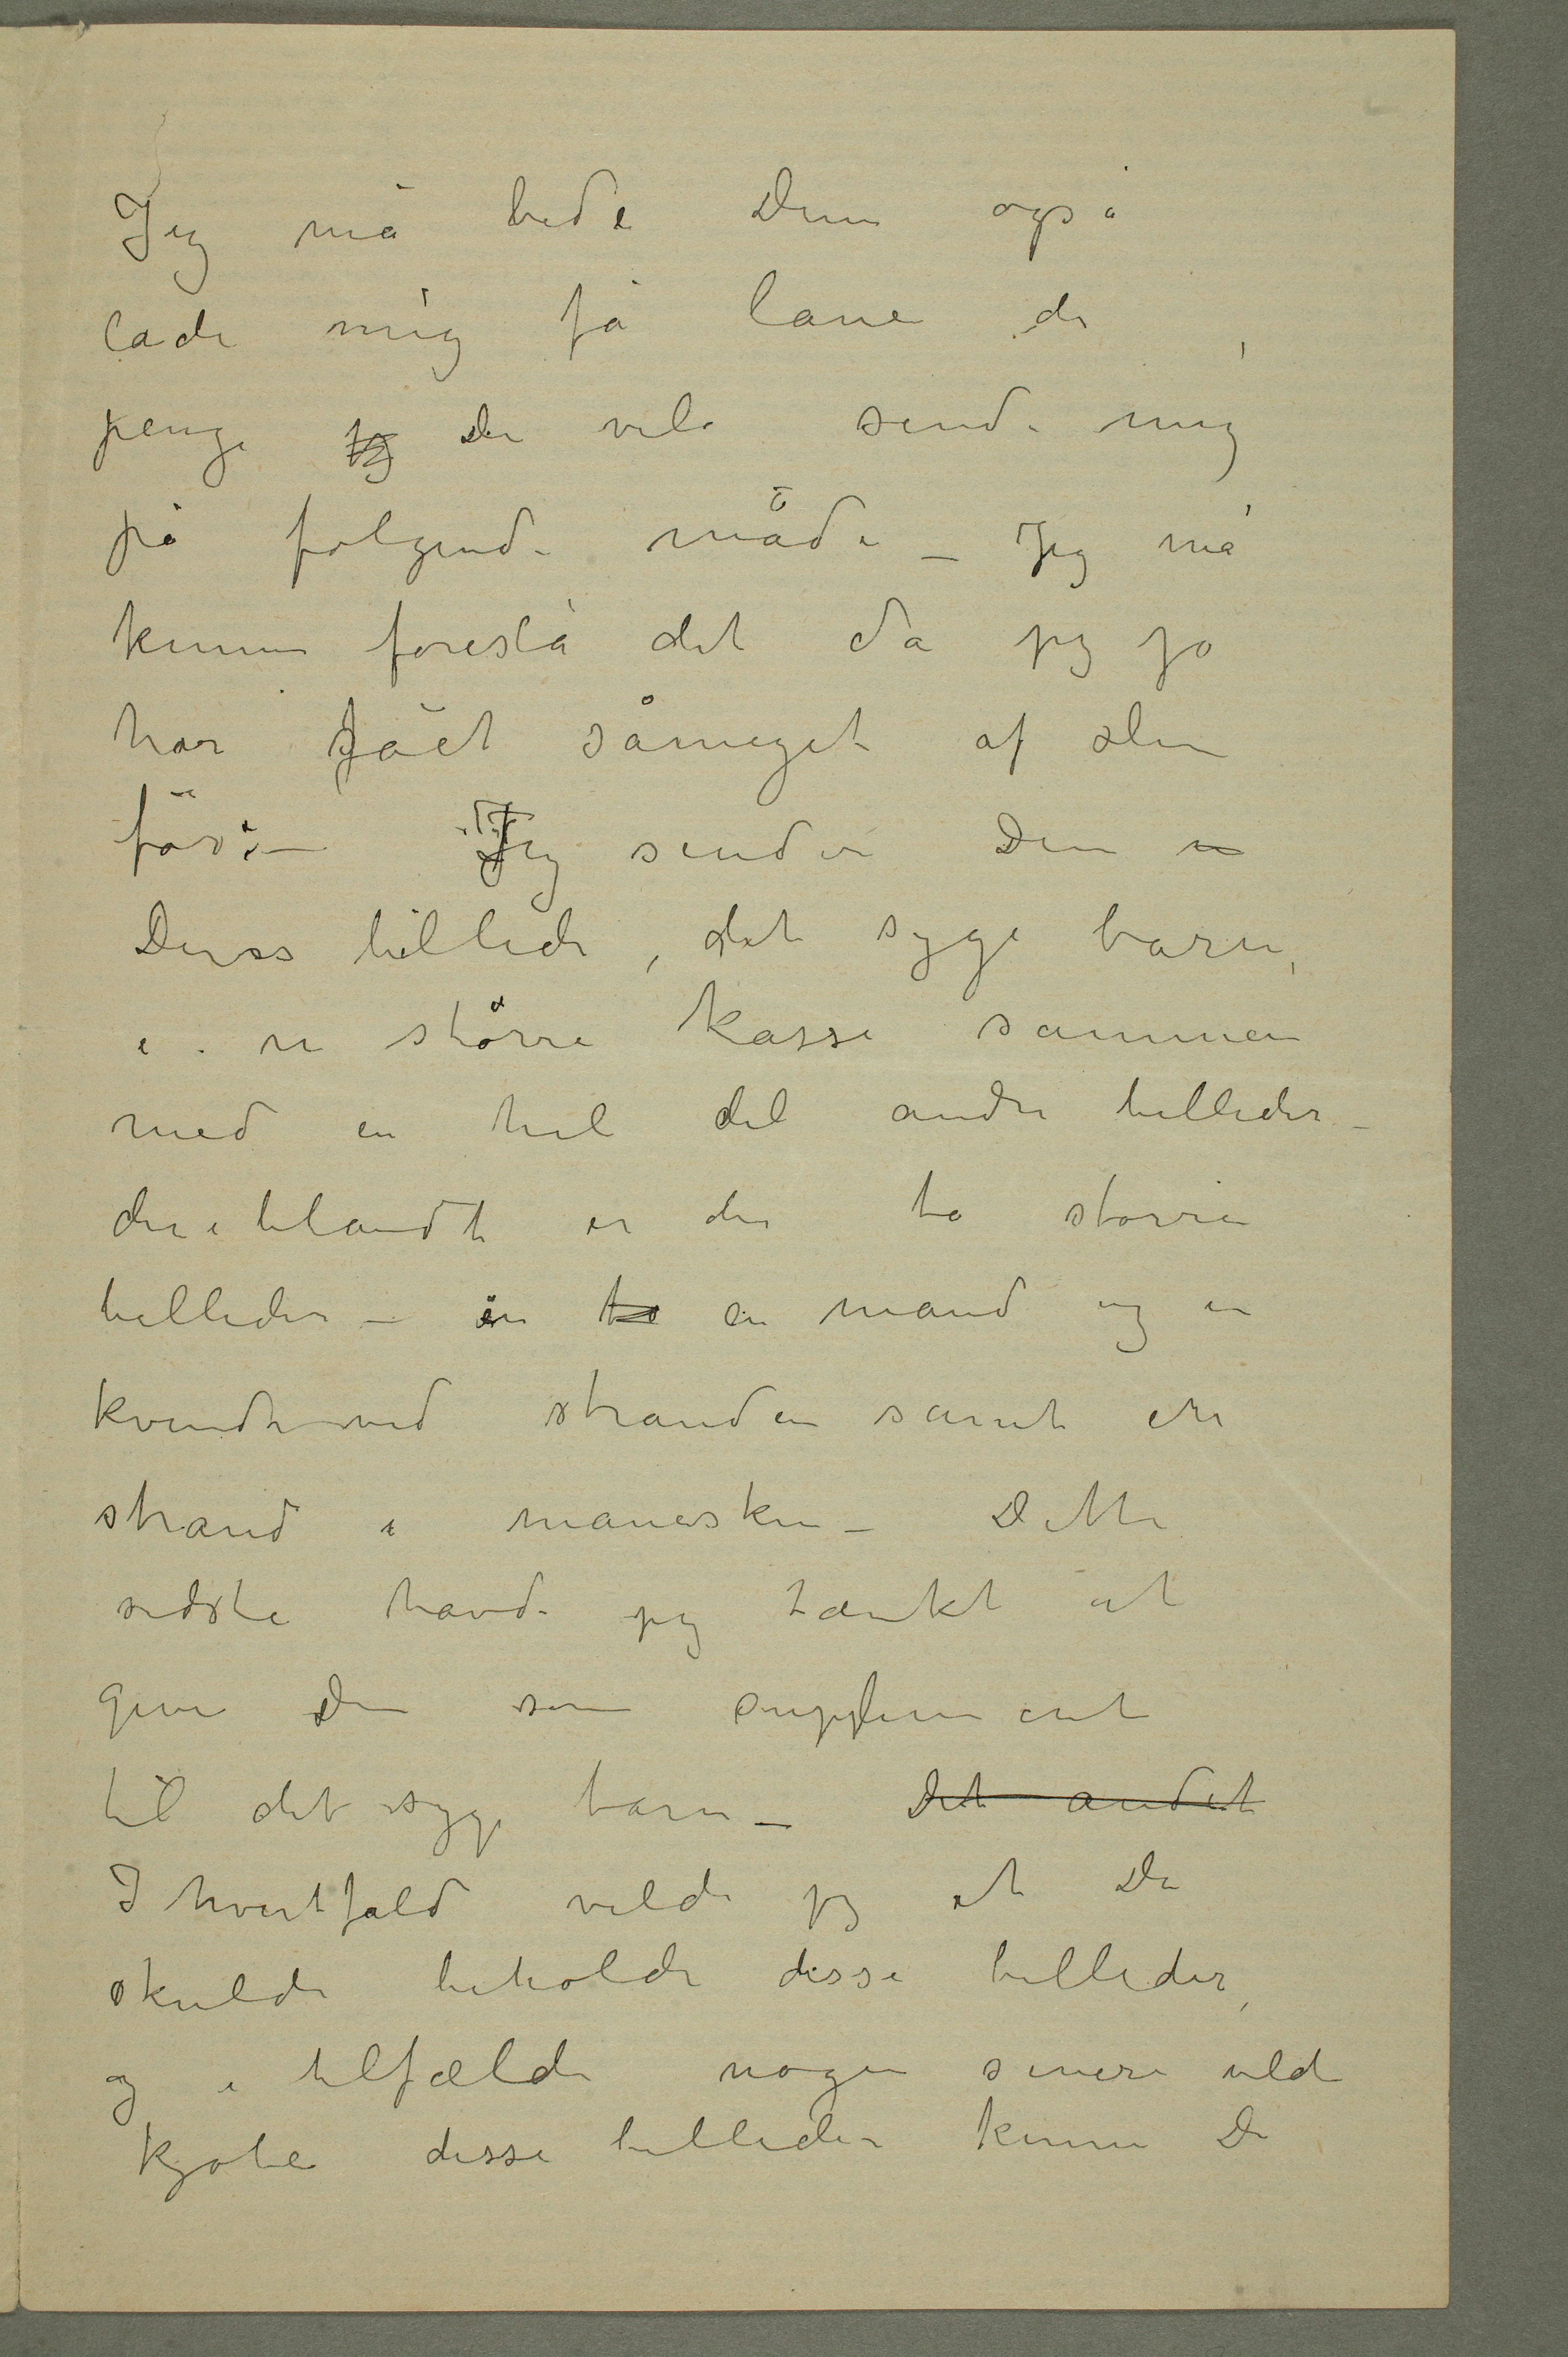 Jeg må bede Dem også
lade mig få låne de
penge jeg De vil sende mig
på følgende måde – Jeg må
kunne foreslå det da jeg jo
har fået såmeget af Dem
før. – Jeg sender Dem
Deres billede, det syge barn,
i en større kasse sammen
med en hel del andre billeder –
deriblandt er der to større
billeder – en to en mand og en
kvinde ved stranden samt en
strand i måneskin – Dette
sidste havde jeg tænkt at
give Dem som supplement
til det syge barn – Det andet
I hvertfald vilde jeg at De
skulde beholde disse billeder,
og i tilfælde nogen senere vilde
kjøbe disse billeder kunne De